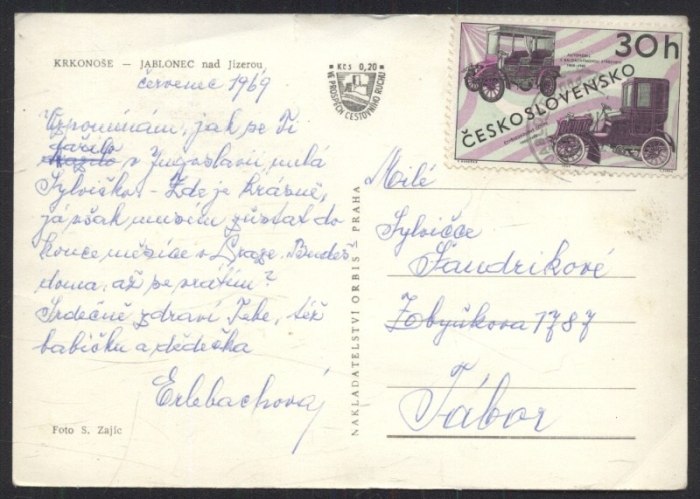 KRKONOŠE — JABLONEC nad Jizerou
červenec 1969
Vzpomínám, jak se Ti
dařilo
v Jugoslavii, milá
Sylviško. - Zde je krásně,
já však musím zůstat do
konce měsíce v Praze. Budeš
doma, až se vrátím?
Srdečně zdraví Tebe, též
babičku a dědečka
Erlebachová
Foto S. Zajíc
NAKLADATELSTVÍ ORBIS PRAHA
Kčs 0,20
VE PROSPĚCH CESTOVNÍHO RUCHU
30h
ČESKOSLOVENSKO
Milé
Sylvičce
Šandrikové
Zbyňkova 1787
Tábor